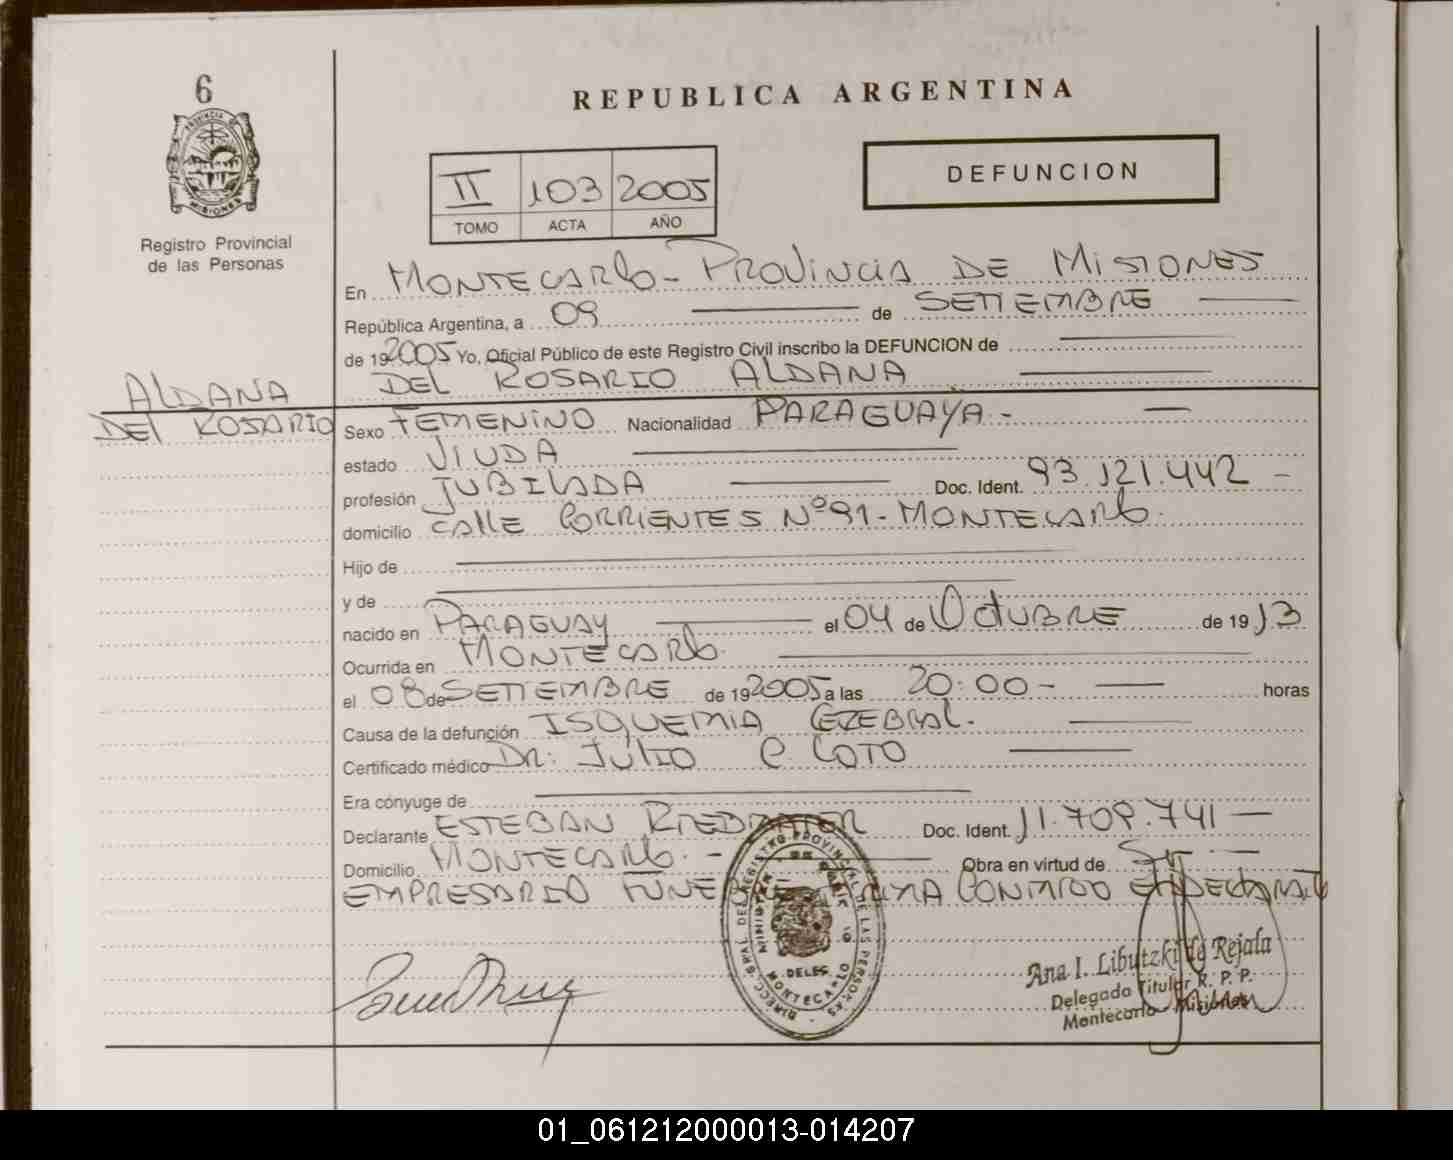 6
REPUBLICA ARGENTINA
PROVINCIA DE
MISIONES
Registro Provincial
de las Personas
DEFUNCION
II 103 2005
TOMO ACTA AÑO
En MONTECARLO - PROVINCIA DE MISIONES
República Argentina, a 09 de SETIEMBRE
de 192005 Yo, Oficial Público de este Registro Civil inscribo la DEFUNCION de
DEL ROSARIO ALDANA
ALDANA
DEL ROSARIO
Sexo FEMENINO Nacionalidad PARAGUAYA -
estado VIUDA
profesión JUBILADA Doc. Ident. 93.121.442 -
domicilio CALLE CORRIENTES Nº 91 - MONTECARLO.
Hijo de
y de
nacido en PARAGUAY el 04 de OCTUBRE de 1913
Ocurrida en MONTECARLO.
el 08 de SETIEMBRE de 192005 a las 20:00 - horas
Causa de la defunción ISQUEMIA CEREBRAL.
Certificado médico DR: JULIO C. COTO
Era cónyuge de
Declarante ESTEBAN Doc. Ident. 11.709.741 -
Domicilio MONTECARLO. - Obra en virtud de SER -
EMPRESARIO CONMIGO EL DECLARANTE
DIRECC. GRAL. DEL REGISTRO PROVINCIAL DE LAS PERSONAS
DELEG.
MONTECARLO
Ana I. Libutzki de Rejala
Delegada Titular R. P. P.
Montecarlo Misiones
01_061212000013-014207